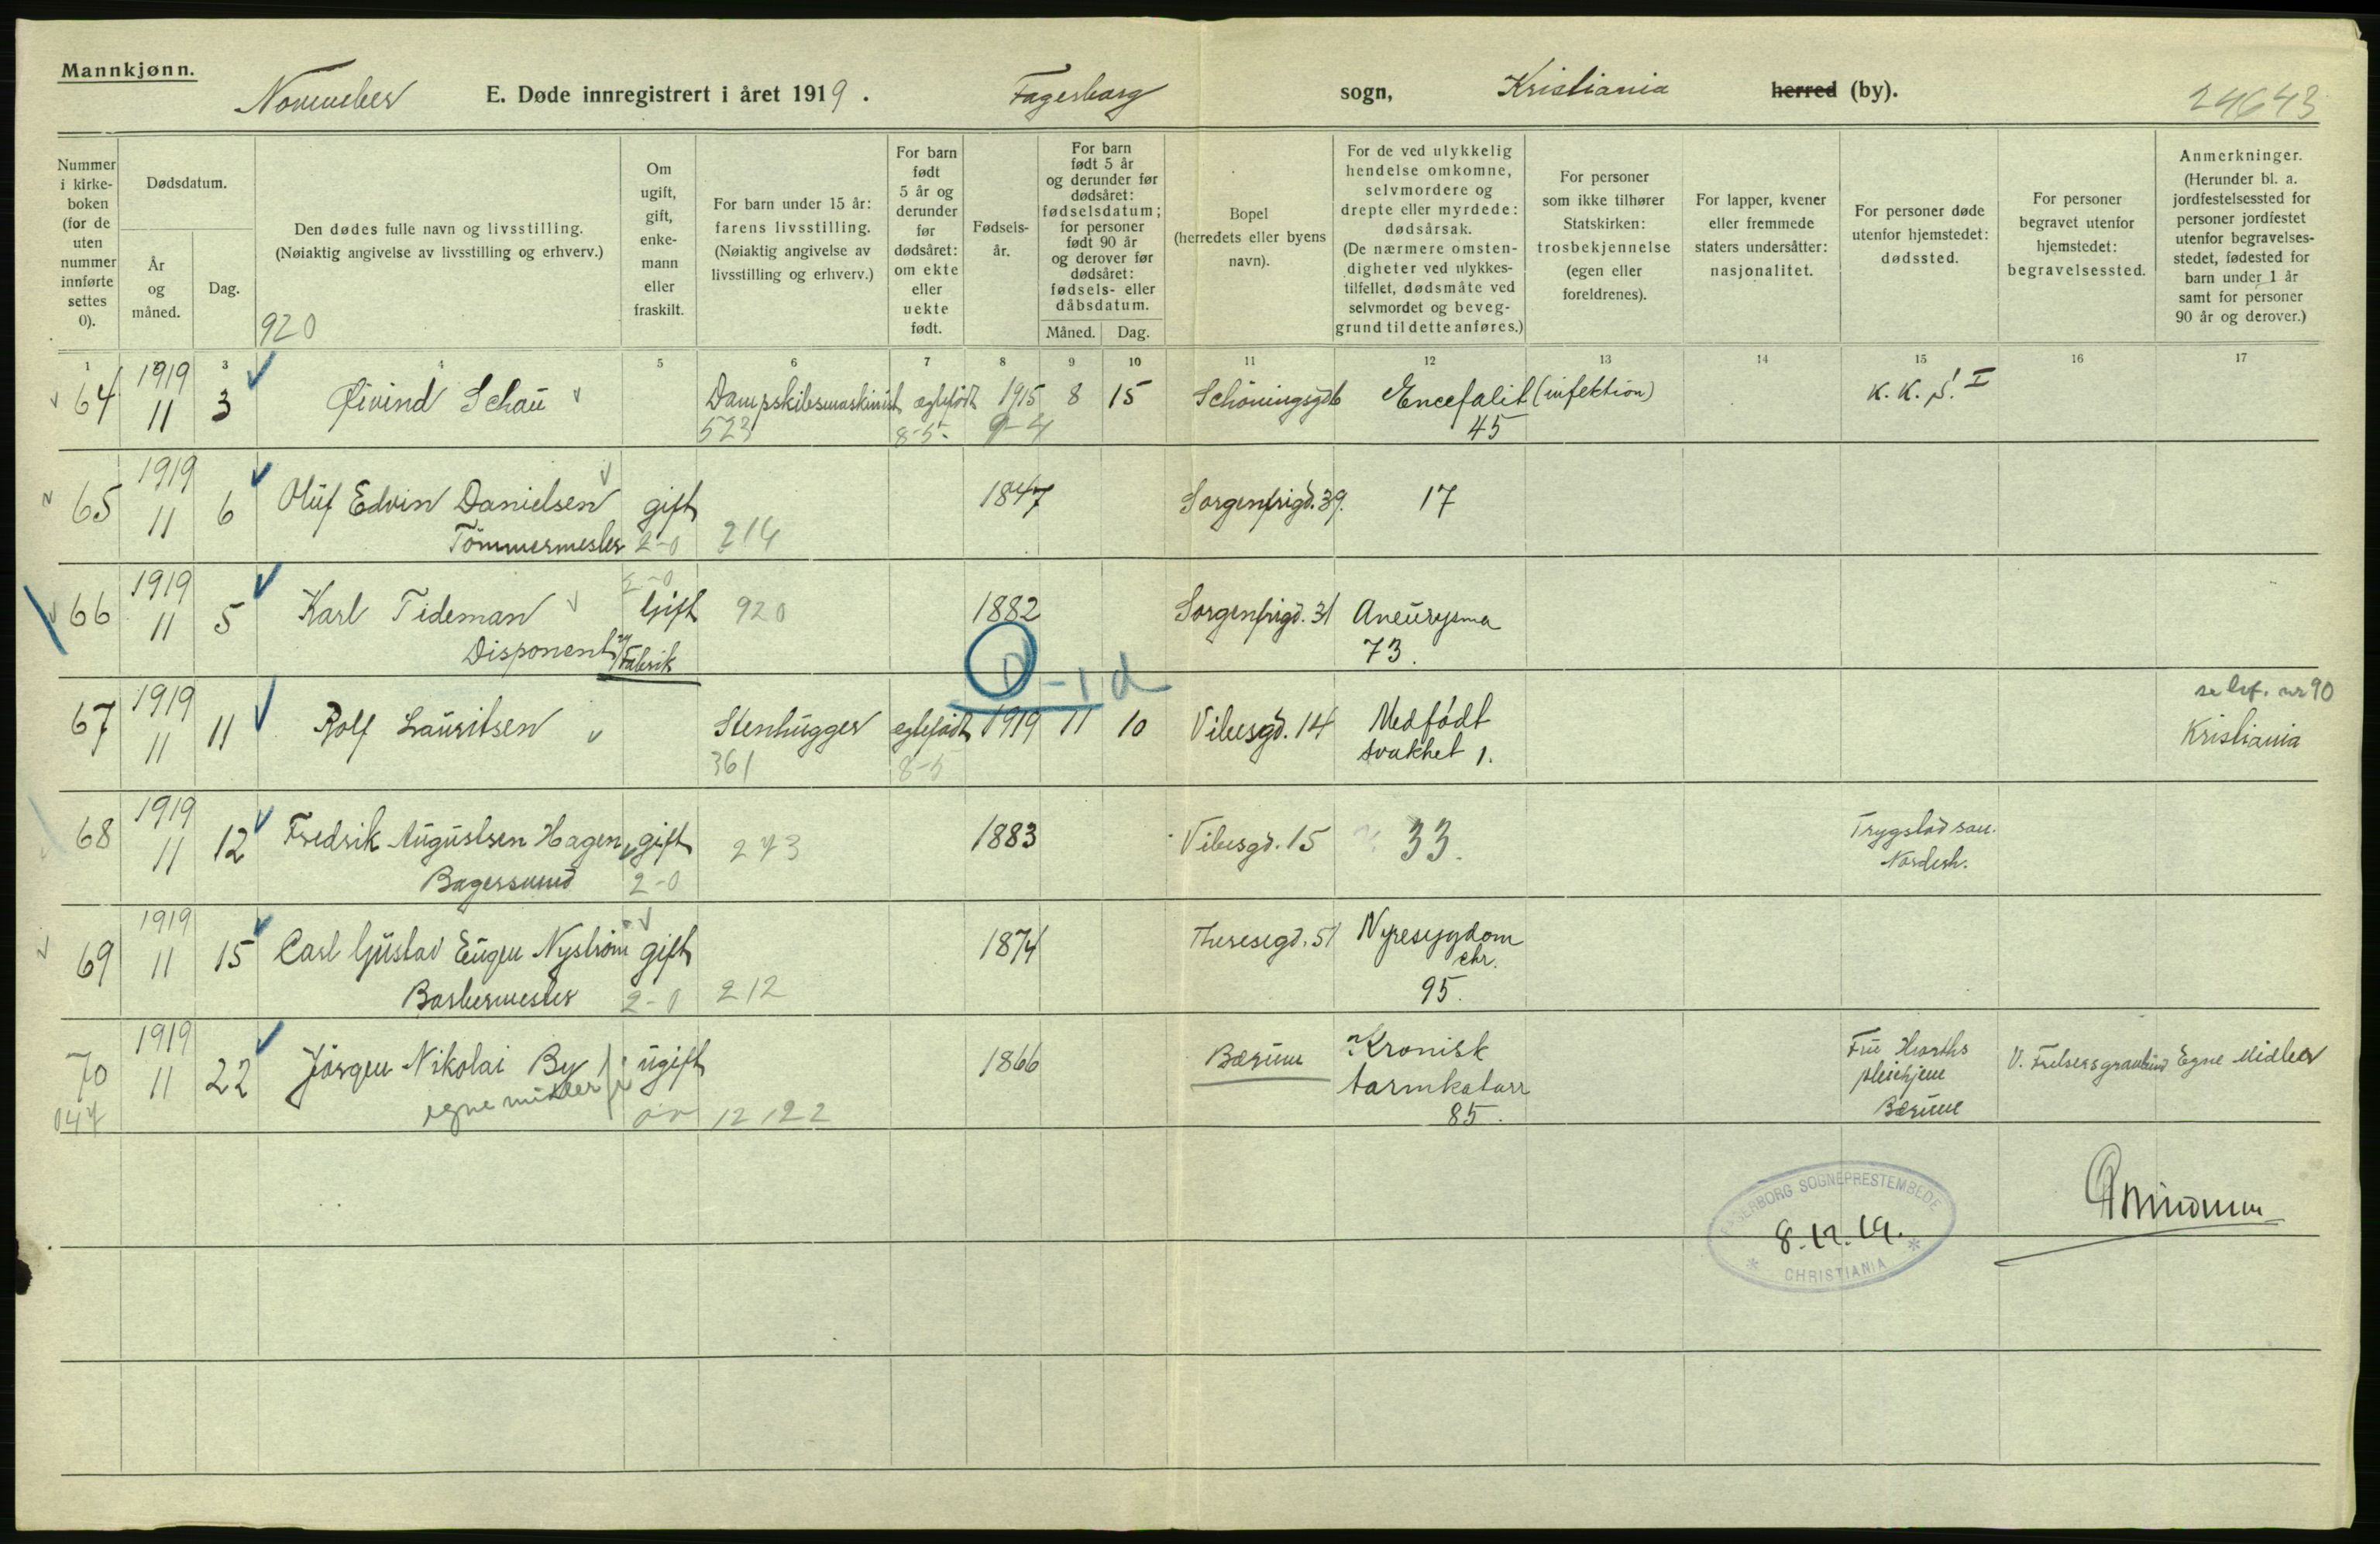 Mannkjønn.
November E. Døde innregistrert i året 1919. Fagerborg sogn, Kristiania herred (by). 24643
Nummer i kirke-boken (for de uten nummer innførte settes 0).
Dødsdatum.
År og måned.
Dag.
Den dødes fulle navn og livsstilling.
(Nøiaktig angivelse av livsstilling og erhverv.)
920
Om ugift, gift, enke-mann eller fraskilt.
For barn under 15 år: farens livsstilling. (Nøiaktig angivelse av livsstilling og erhverv.)
For barn født 5 år og derunder før dødsåret: om ekte eller uekte født.
Fødsels-år.
For barn født 5 år og derunder før dødsåret: fødselsdatum; for personer født 90 år og derover før dødsåret: fødsels- eller dåbsdatum.
Måned. Dag.
Bopel (herredets eller byens navn).
For de ved ulykkelig hendelse omkomne, selvmordere og drepte eller myrdede: dødsårsak. (De nærmere omsten-digheter ved ulykkes-tilfellet, dødsmåte ved selvmordet og beveg-grund til dette anføres.)
For personer som ikke tilhører Statskirken: trosbekjennelse (egen eller foreldrenes).
For lapper, kvener eller fremmede staters undersåtter: nasjonalitet.
For personer døde utenfor hjemstedet: dødssted.
For personer begravet utenfor hjemstedet: begravelsessted.
Anmerkninger. (Herunder bl. a. jordfestelsessted for personer jordfestet utenfor begravelses-stedet, fødested for barn under 1 år samt for personer 90 år og derover.)
1 3 4 5 6 7 8 9 10 11 12 13 14 15 16 17
64 1919 11 3 Øivind Schau Dampskibsmaskinist egtefødt 1915 8 15 Schöningsgd 6 Encefalit (infektion) K. K. S. I
523 8-5 9-4 45
65 1919 11 6 Oluf Edvin Danielsen gift 1847 Sorgenfrigd. 39. 17
Tømmermester 2-0 214
66 1919 11 5 Karl Tideman Gift 920 1882 Sorgenfrigd. 31 Aneurysma
Disponent Fabrik 73.
0-1 d
67 1919 11 11 Rolf Lauritsen Stenhugger egtefødt 1919 11 10 Vibesgd. 14 Medfødt svakhet 1. se lvf. nr 90 Kristiania
361 8-5
68 1919 11 12 Fredrik Augustsen Hagen gift 273 1883 Vibesgd. 15 33. Trygstad san. Nordeh.
Bagersvend 2-0
69 1919 11 15 Carl Gustav Eugen Nystrøm gift 1874 Theresegd. 51 Nyresygdom chr.
Barbermester 2-0 212 95.
70 1919 11 22 Jørgen Nikolai By ugift 1866 Bærum Kronisk tarmkatarr Fru Hjorths pleiehjem Bærum V. Frelsersgravlund Egne Midler
047 egne midler 12122 85.
FAGERBORG SOGNEPRESTEMBEDE
8.12.19.
* CHRISTIANIA *